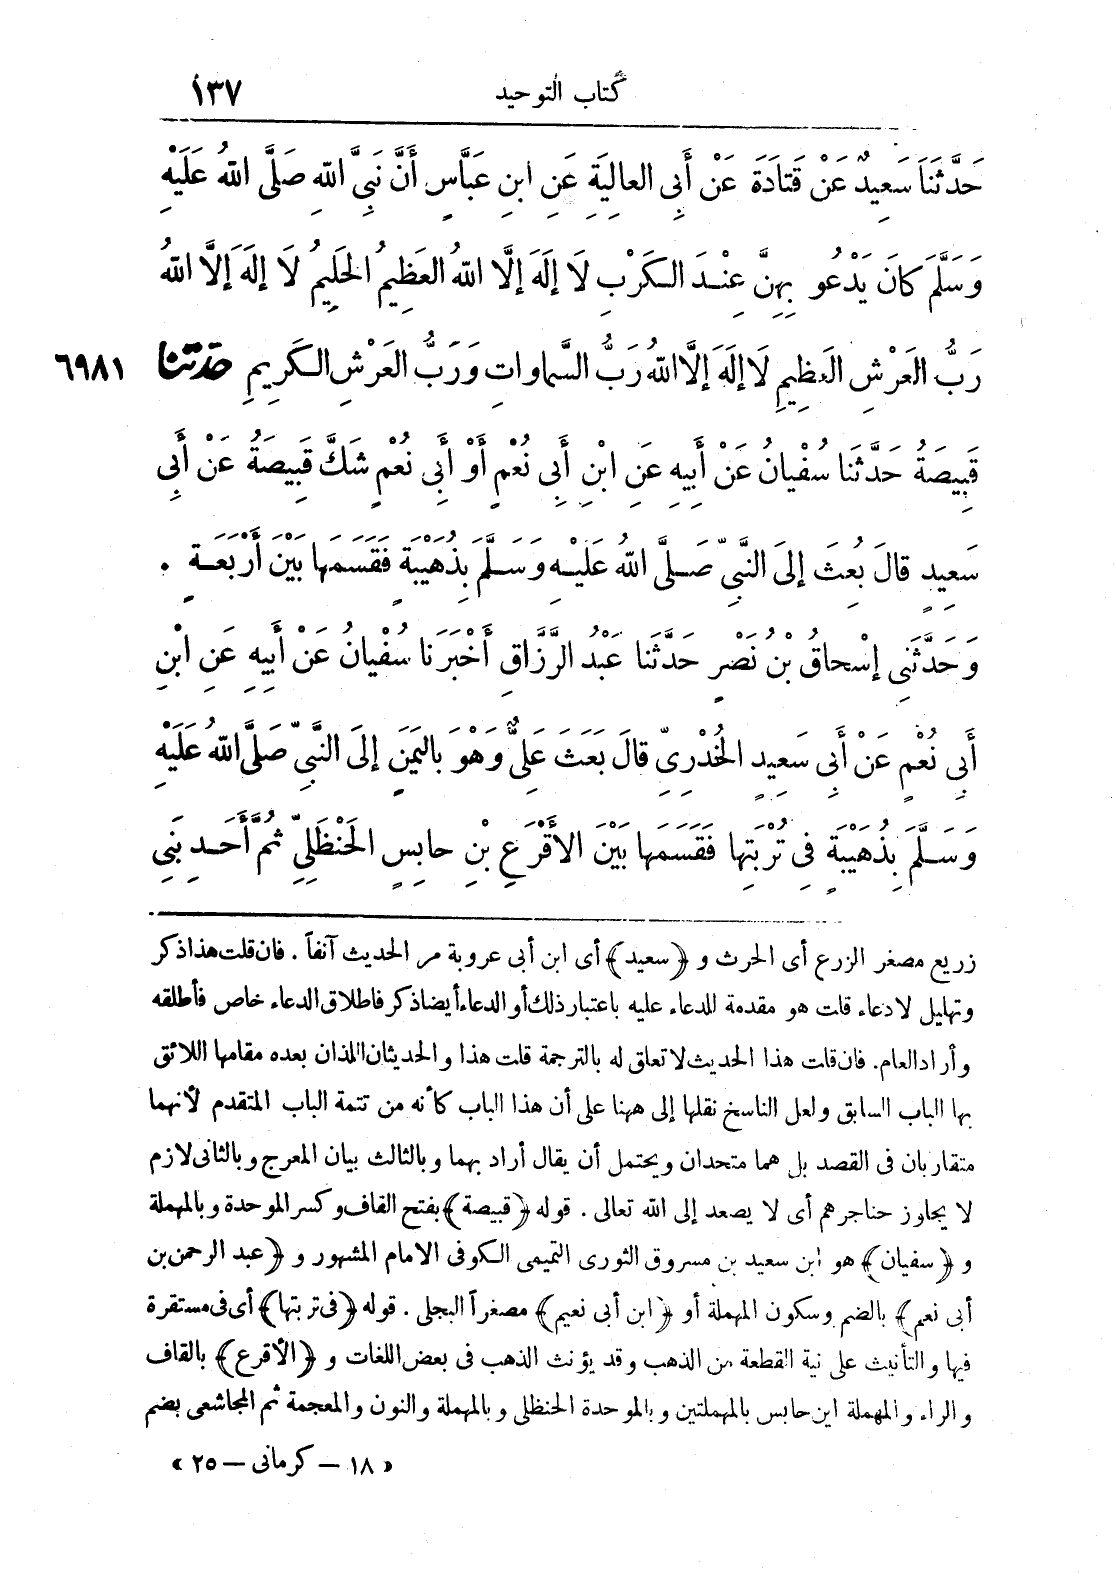 كتاب التوحيد ١٣٧
حَدَّثَنَا سَعِيدٌ عَنْ قَتَادَةَ عَنْ أَبِى العالِيَةِ عَنِ ابنِ عَبَّاسٍ أَنَّ نَبِىَّ اللهِ صَلَّى اللهُ عَلَيْهِ
وَسَلَّمَ كانَ يَدْعُو بِهِنَّ عِنْدَ الكَرْبِ لَا إِلَهَ إِلَّا اللهُ العَظِيمُ الحَلِيمُ لَا إِلَهَ إِلَّا اللهُ
رَبُّ العَرْشِ العَظِيمِ لَا إِلَهَ إِلَّا اللهُ رَبُّ السَّماوات وَرَبُّ العَرْشِ الكَرِيمِ حدثنا ٦٩٨١
قَبِيصَةُ حَدَّثَنا سُفْيانُ عَنْ أَبِيهِ عَنِ ابْنِ أَبِى نُعْمٍ أَوْ أَبِى نُعْمٍ شَكَّ قَبِيصَةُ عَنْ أَبِى
سَعِيدٍ قالَ بُعِثَ إلَى النَّبِىِّ صَلَّى اللهُ عَلَيْهِ وَسَلَّمَ بِذُهَيْبَةٍ فَقَسَمَها بَيْنَ أَرْبَعَةٍ .
وَحَدَّثَنِى إِسْحاقُ بْنُ نَصْرٍ حَدَّثَنا عَبْدُ الرَّزَّاقِ أَخْبَرَنا سُفْيانُ عَنْ أَبِيهِ عَنِ ابْنِ
أَبِى نُعْمٍ عَنْ أَبِى سَعِيدٍ الخُدْرِىِّ قالَ بَعَثَ عَلِىٌّ وَهْوَ باليَمَنِ إلَى النَّبِىِّ صَلَّى اللهُ عَلَيْهِ
وَسَلَّمَ بِذُهَيْبَةٍ فِى تُرْبَتِها فَقَسَمَها بَيْنَ الأَقْرَعِ بْنِ حابِسٍ الحَنْظَلِىِّ ثُمَّ أَحَدِ بَنِى
زريع مصغر الزرع أى الحرث و ﴿سعيد﴾ أى ابن أبى عروبة مر الحديث آنفاً . فان قلت هذا ذكر
وتهليل لا دعاء قلت هو مقدمة للدعاء عليه باعتبار ذلك أو الدعاء أيضا ذكر فاطلاق الدعاء خاص فأطلقه
وأراد العام. فان قلت هذا الحديث لا تعلق له بالترجمة قلت هذا والحديثان اللذان بعده مقامها اللائق
بها الباب السابق ولعل الناسخ نقلها إلى ههنا على أن هذا الباب كأنه من تتمة الباب المتقدم لأنهما
متقاربان فى القصد بل هما متحدان ويحتمل أن يقال أراد بهما وبالثالث بيان المعرج وبالثانى لازم
لا يجاوز حناجرهم أى لا يصعد إلى الله تعالى . قوله ﴿قبيصة﴾ بفتح القاف وكسر الموحدة وبالمهملة
و ﴿سفيان﴾ هو ابن سعيد بن مسروق الثورى التميمى الكوفى الامام المشهور و ﴿عبد الرحمن بن
أبى نعم﴾ بالضم وسكون المهملة أو ﴿ابن أبى نعيم﴾ مصغراً البجلى . قوله ﴿فى تربتها﴾ أى فى مستقرة
فيها والتأنيث على نية القطعة من الذهب وقد يؤنث الذهب فى بعض اللغات و ﴿الأقرع﴾ بالقاف
والراء والمهملة ابن حابس بالمهملتين وبالموحدة الحنظلى وبالمهملة والنون والمعجمة ثم المجاشعى بضم
« ١٨ – كرمانى – ٢٥ »